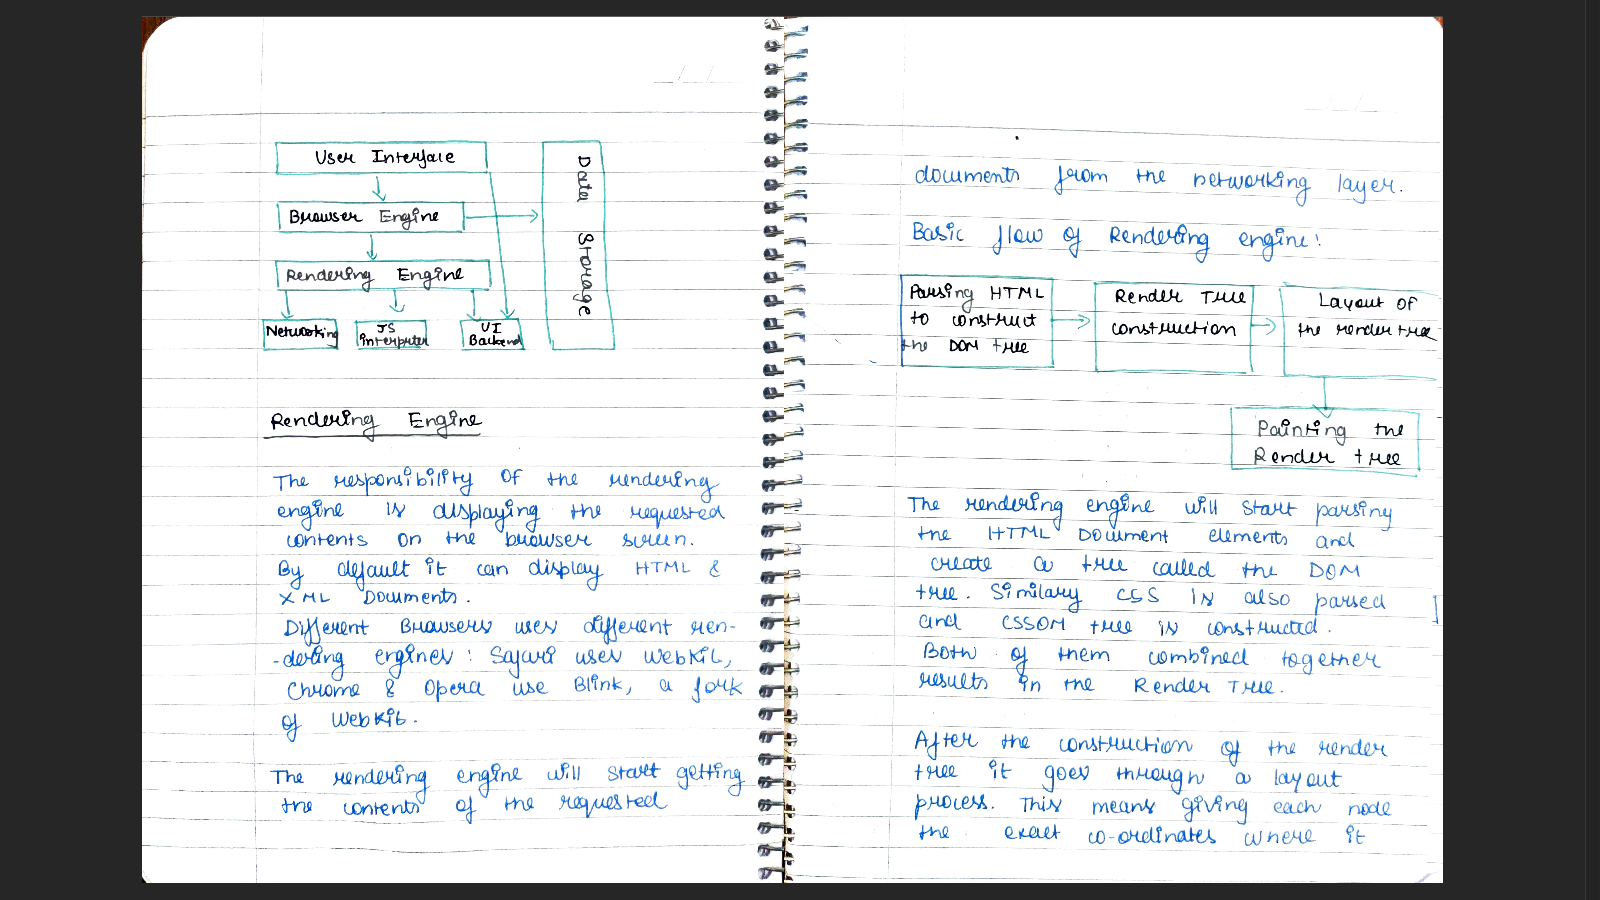 User Interface
Browser Engine
Rendering Engine
Networking
JS
interpreter
UI
Backend
Data Storage
Rendering Engine
The responsibility of the rendering
engine is displaying the requested
contents on the browser screen.
By default it can display HTML &
XML Documents.
Different Browsers uses different ren-
-dering engines : Safari uses WebKit,
Chrome & Opera use Blink, a fork
of WebKit.
The rendering engine will start getting
the contents of the requested
documents from the networking layer.
Basic flow of Rendering engine:
Parsing HTML
to construct
the DOM tree
Render Tree
construction
Layout of
the render tree
Painting the
Render tree
The rendering engine will start parsing
the HTML Document elements and
create a tree called the DOM
tree. Similary CSS is also parsed
and CSSOM tree is constructed.
Both of them combined together
results in the Render Tree.
After the construction of the render
tree it goes through a layout
process. This means giving each node
the exact co-ordinates where it